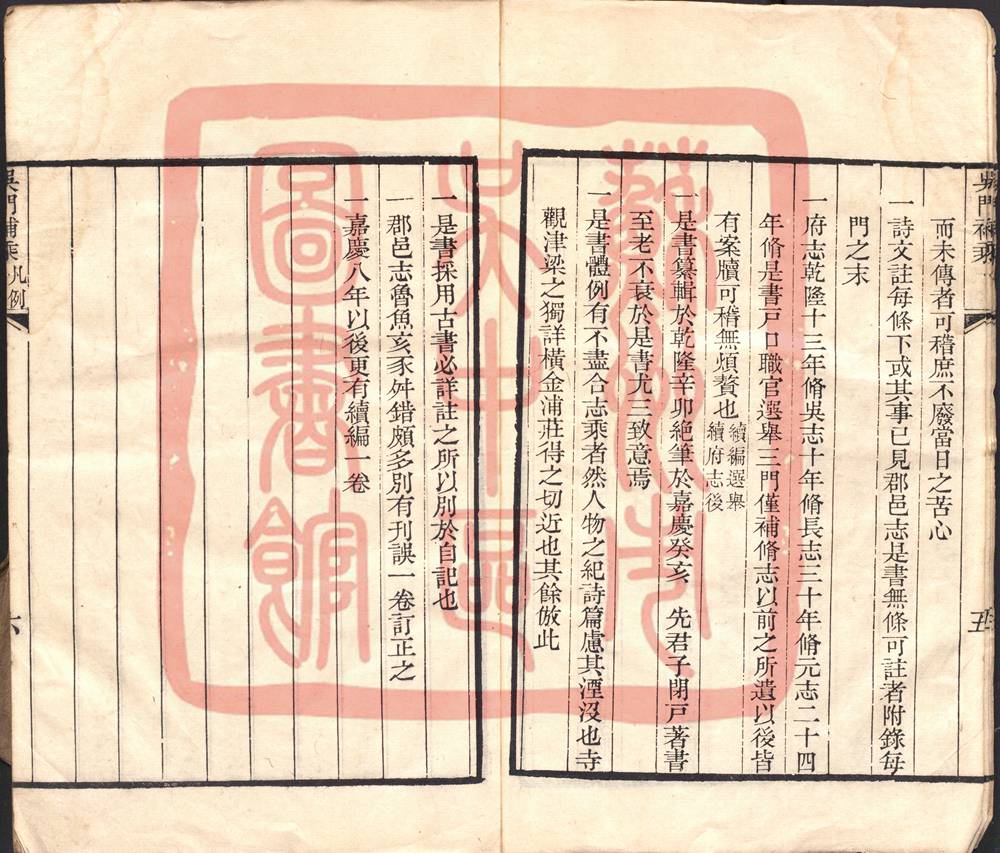 吳門補乘
五
而未傳者可稽庶不廢當日之苦心
一詩文註每條下或其事已見郡邑志是書無條可註者附錄每
門之末
一府志乾隆十三年脩吳志十年脩長志三十年脩元志二十四
年脩是書戶口職官選舉三門僅補脩志以前之所遺以後皆
有案牘可稽無煩贅也續編選舉
續府志後
一是書纂輯於乾隆辛卯絶筆於嘉慶癸亥 先君子閉戸著書
至老不衰於是書尤三致意焉
一是書體例有不盡合志乘者然人物之紀詩篇慮其湮沒也寺
觀津梁之獨詳橫金浦莊得之切近也其餘倣此
一是書採用古書必詳註之所以別於自記也
一郡邑志魯魚亥豕舛錯頗多別有刊誤一卷訂正之
一嘉慶八年以後更有續編一卷
吳門補乘 凡例
六
蘇州市
吳中區
圖書館